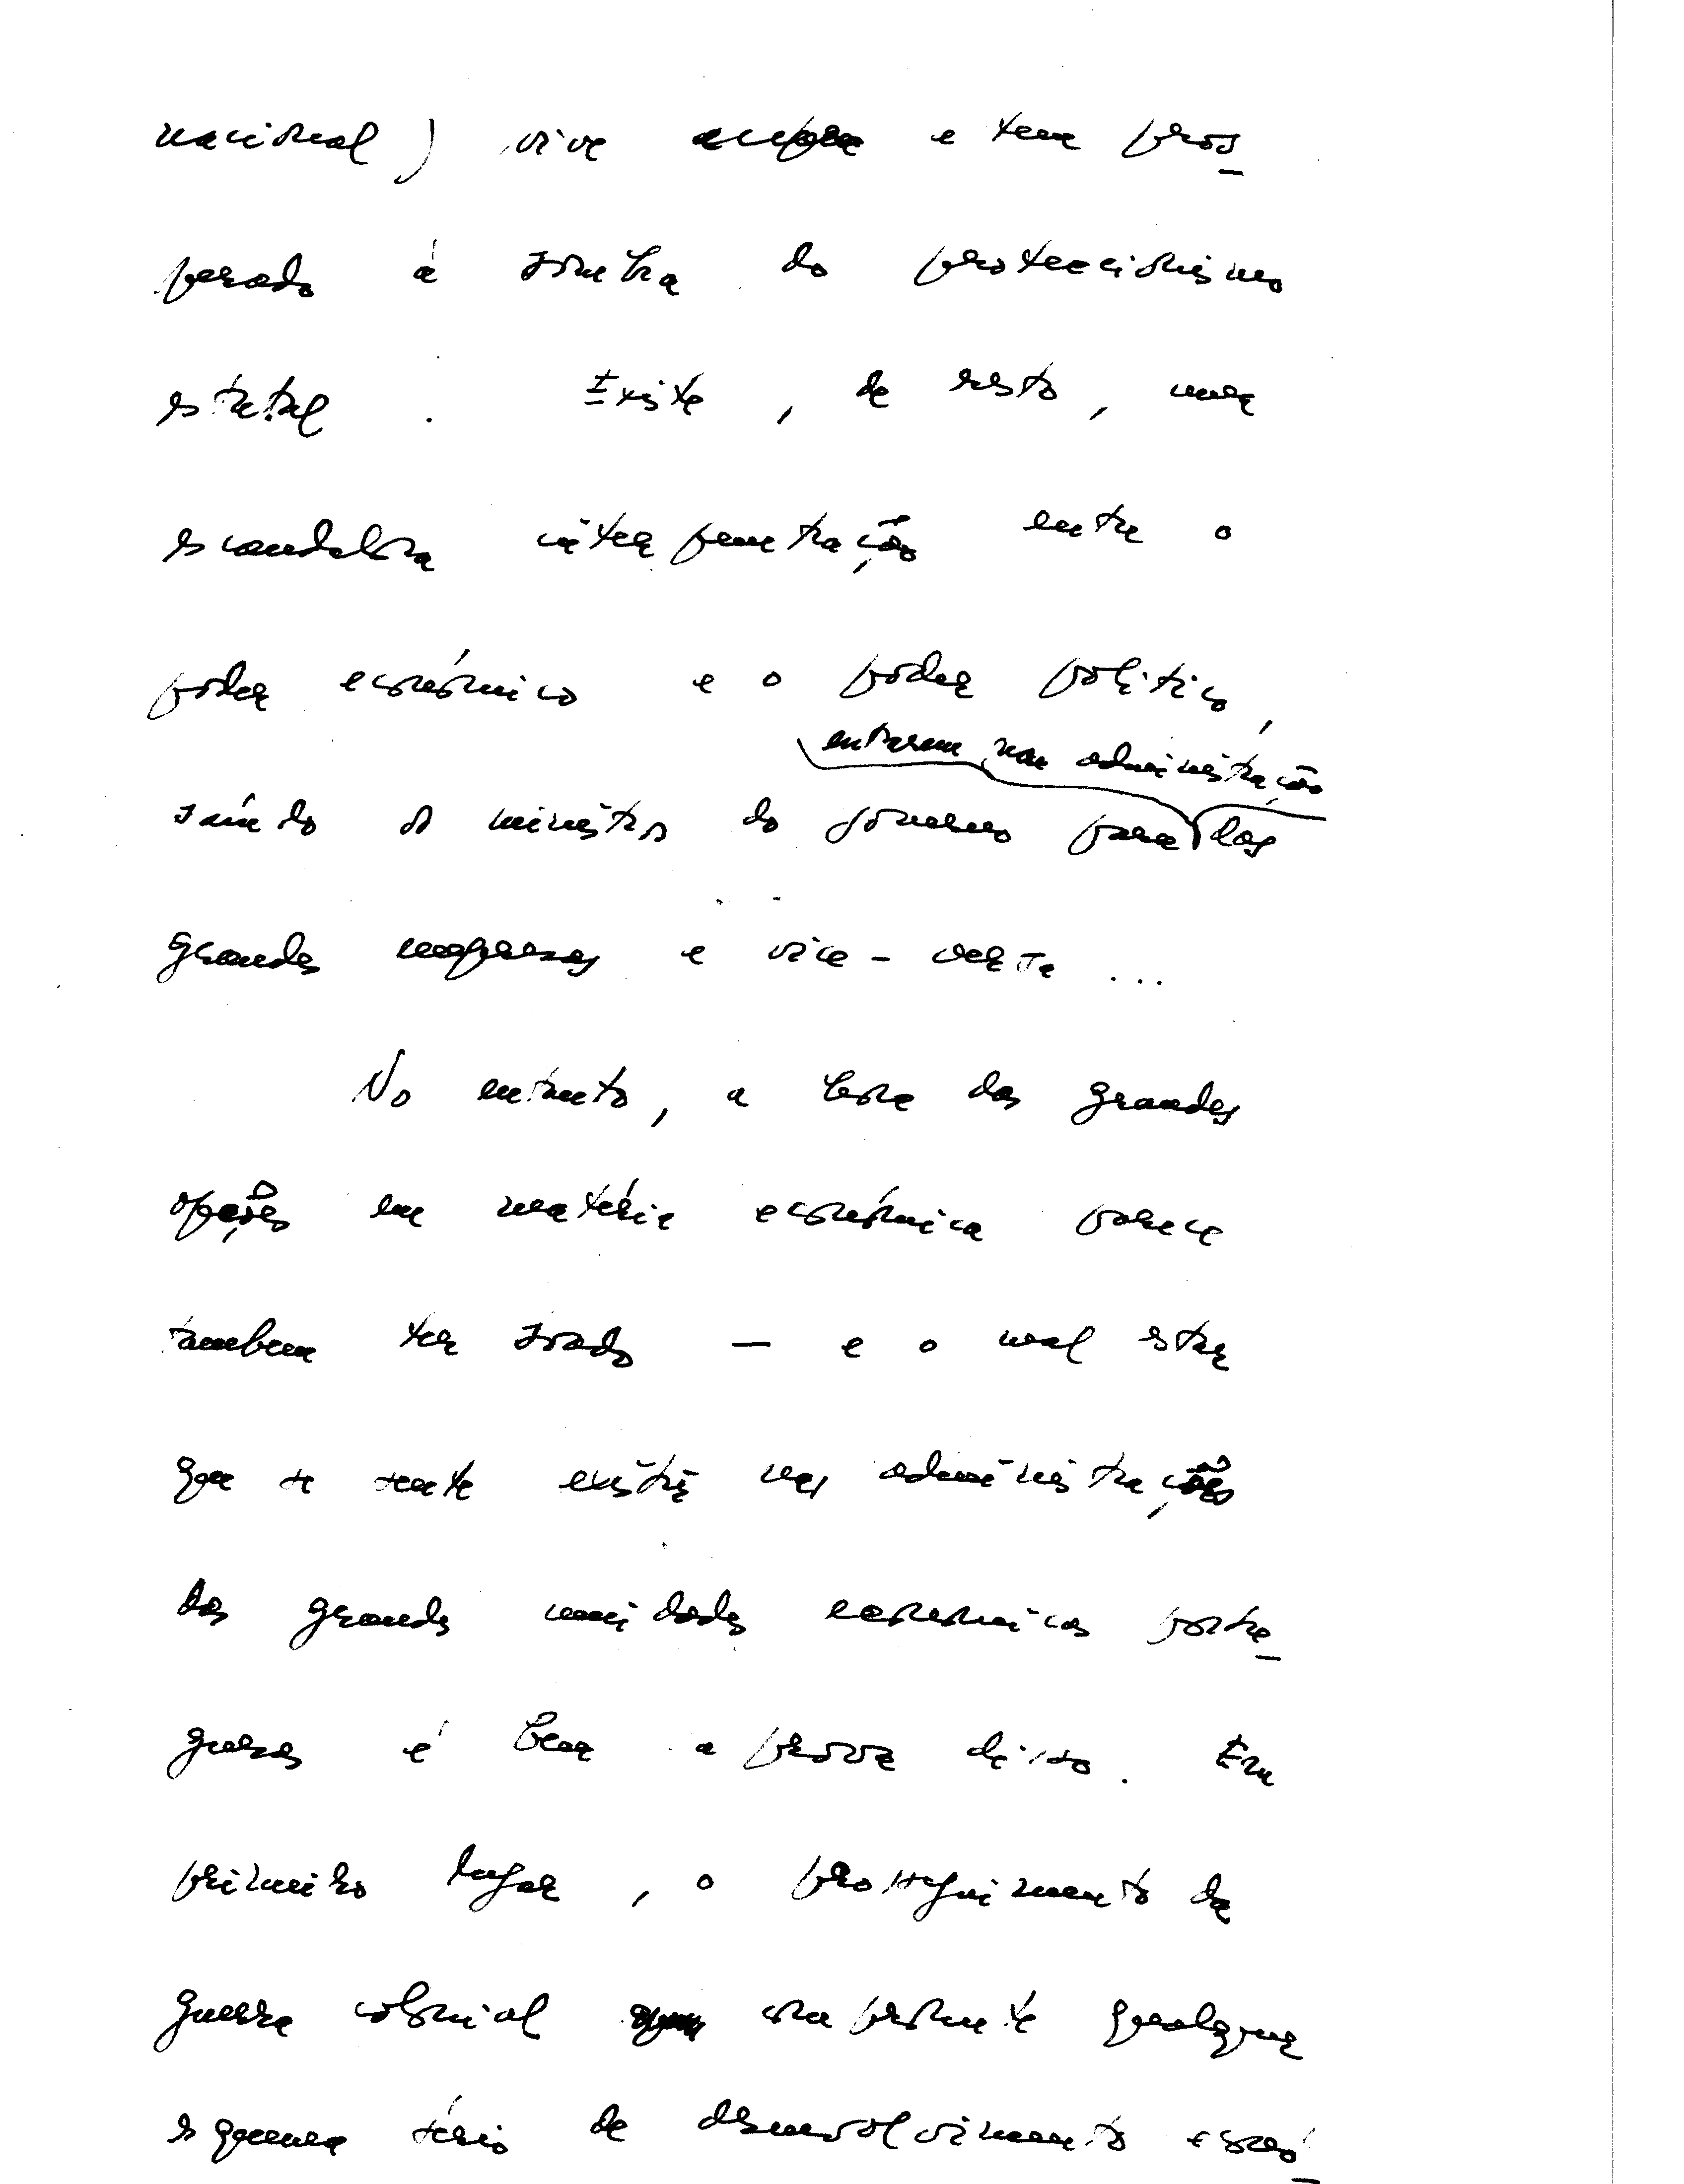 nacional) vive e tem pros
perado à sombra do proteccionismo
estatal. Existe, de resto, uma
escandalosa interpenetração entre o
poder económico e o poder político,
entrarem na administração
saíndo os ministros do governo para das
grandes empresas e vice-versa ...
No entanto, a hora das grandes
opções em matéria económica parece
tambem ter soado — e o mal estar
que se sente existir nas administrações
das grandes unidades económicas portu
guesas é bem a prova disso. Em
primeiro lugar, o prosseguimento da
guerra colonial compromete qualquer
esquema sério de desenvolvimento econó